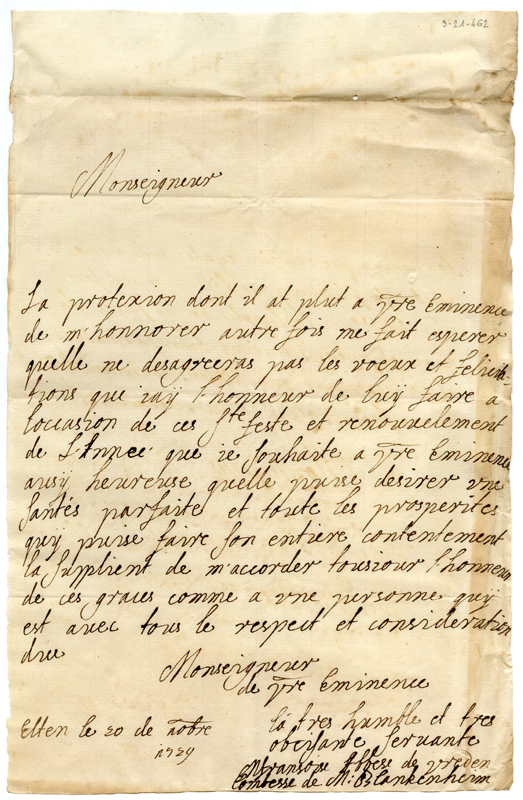 3-21-462
Monseigneur
La protexion dont il at plut a vre Eminence
de m'honnorer autre fois me fait esperer
quelle ne desagreeras pas les voeux et felicita-
tions que iaÿ l'honneur de luÿ faire a
l'occasion de ces Ste feste et renouuelement
de L'Annee que ie souhaite a vre Eminence
ausÿ heureuse quelle puise desirer vne
santés parfaite et toute les prosperites
quÿ puise faire son entiere contentement
la supplient de m'accorder tousiour l'honneur
de ces graces comme a vne personne quÿ
est avec tous le respect et consideration
due
Monseigneur
de vre Eminence
la tres humble et tres
obeisante servante
Elten le 20 de
1729
Abbese de Vreden
Comtesse de M: Blankenheim